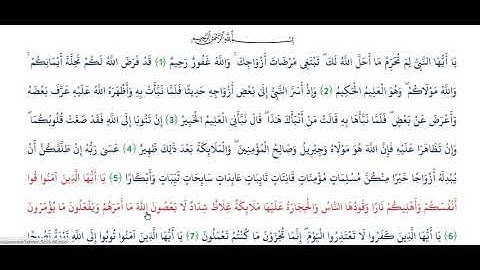 بِسْمِ اللَّهِ الرَّحْمَٰنِ الرَّحِيمِ
يَا أَيُّهَا النَّبِيُّ لِمَ تُحَرِّمُ مَا أَحَلَّ اللَّهُ لَكَ ۖ تَبْتَغِي مَرْضَاتَ أَزْوَاجِكَ ۚ وَاللَّهُ غَفُورٌ رَحِيمٌ (1) قَدْ فَرَضَ اللَّهُ لَكُمْ تَحِلَّةَ أَيْمَانِكُمْ ۚ
وَاللَّهُ مَوْلَاكُمْ ۖ وَهُوَ الْعَلِيمُ الْحَكِيمُ (2) وَإِذْ أَسَرَّ النَّبِيُّ إِلَىٰ بَعْضِ أَزْوَاجِهِ حَدِيثًا فَلَمَّا نَبَّأَتْ بِهِ وَأَظْهَرَهُ اللَّهُ عَلَيْهِ عَرَّفَ بَعْضَهُ
وَأَعْرَضَ عَنْ بَعْضٍ ۖ فَلَمَّا نَبَّأَهَا بِهِ قَالَتْ مَنْ أَنْبَأَكَ هَٰذَا ۖ قَالَ نَبَّأَنِيَ الْعَلِيمُ الْخَبِيرُ (3) إِنْ تَتُوبَا إِلَى اللَّهِ فَقَدْ صَغَتْ قُلُوبُكُمَا ۖ
وَإِنْ تَظَاهَرَا عَلَيْهِ فَإِنَّ اللَّهَ هُوَ مَوْلَاهُ وَجِبْرِيلُ وَصَالِحُ الْمُؤْمِنِينَ ۖ وَالْمَلَائِكَةُ بَعْدَ ذَٰلِكَ ظَهِيرٌ (4) عَسَىٰ رَبُّهُ إِنْ طَلَّقَكُنَّ أَنْ
يُبْدِلَهُ أَزْوَاجًا خَيْرًا مِنْكُنَّ مُسْلِمَاتٍ مُؤْمِنَاتٍ قَانِتَاتٍ تَائِبَاتٍ عَابِدَاتٍ سَائِحَاتٍ ثَيِّبَاتٍ وَأَبْكَارًا (5) يَا أَيُّهَا الَّذِينَ آمَنُوا قُوا
أَنْفُسَكُمْ وَأَهْلِيكُمْ نَارًا وَقُودُهَا النَّاسُ وَالْحِجَارَةُ عَلَيْهَا مَلَائِكَةٌ غِلَاظٌ شِدَادٌ لَا يَعْصُونَ اللَّهَ مَا أَمَرَهُمْ وَيَفْعَلُونَ مَا يُؤْمَرُونَ
(6) يَا أَيُّهَا الَّذِينَ كَفَرُوا لَا تَعْتَذِرُوا الْيَوْمَ ۖ إِنَّمَا تُجْزَوْنَ مَا كُنْتُمْ تَعْمَلُونَ (7) يَا أَيُّهَا الَّذِينَ آمَنُوا تُوبُوا إِلَى اللَّهِ تَوْبَةً نَصُوحًا